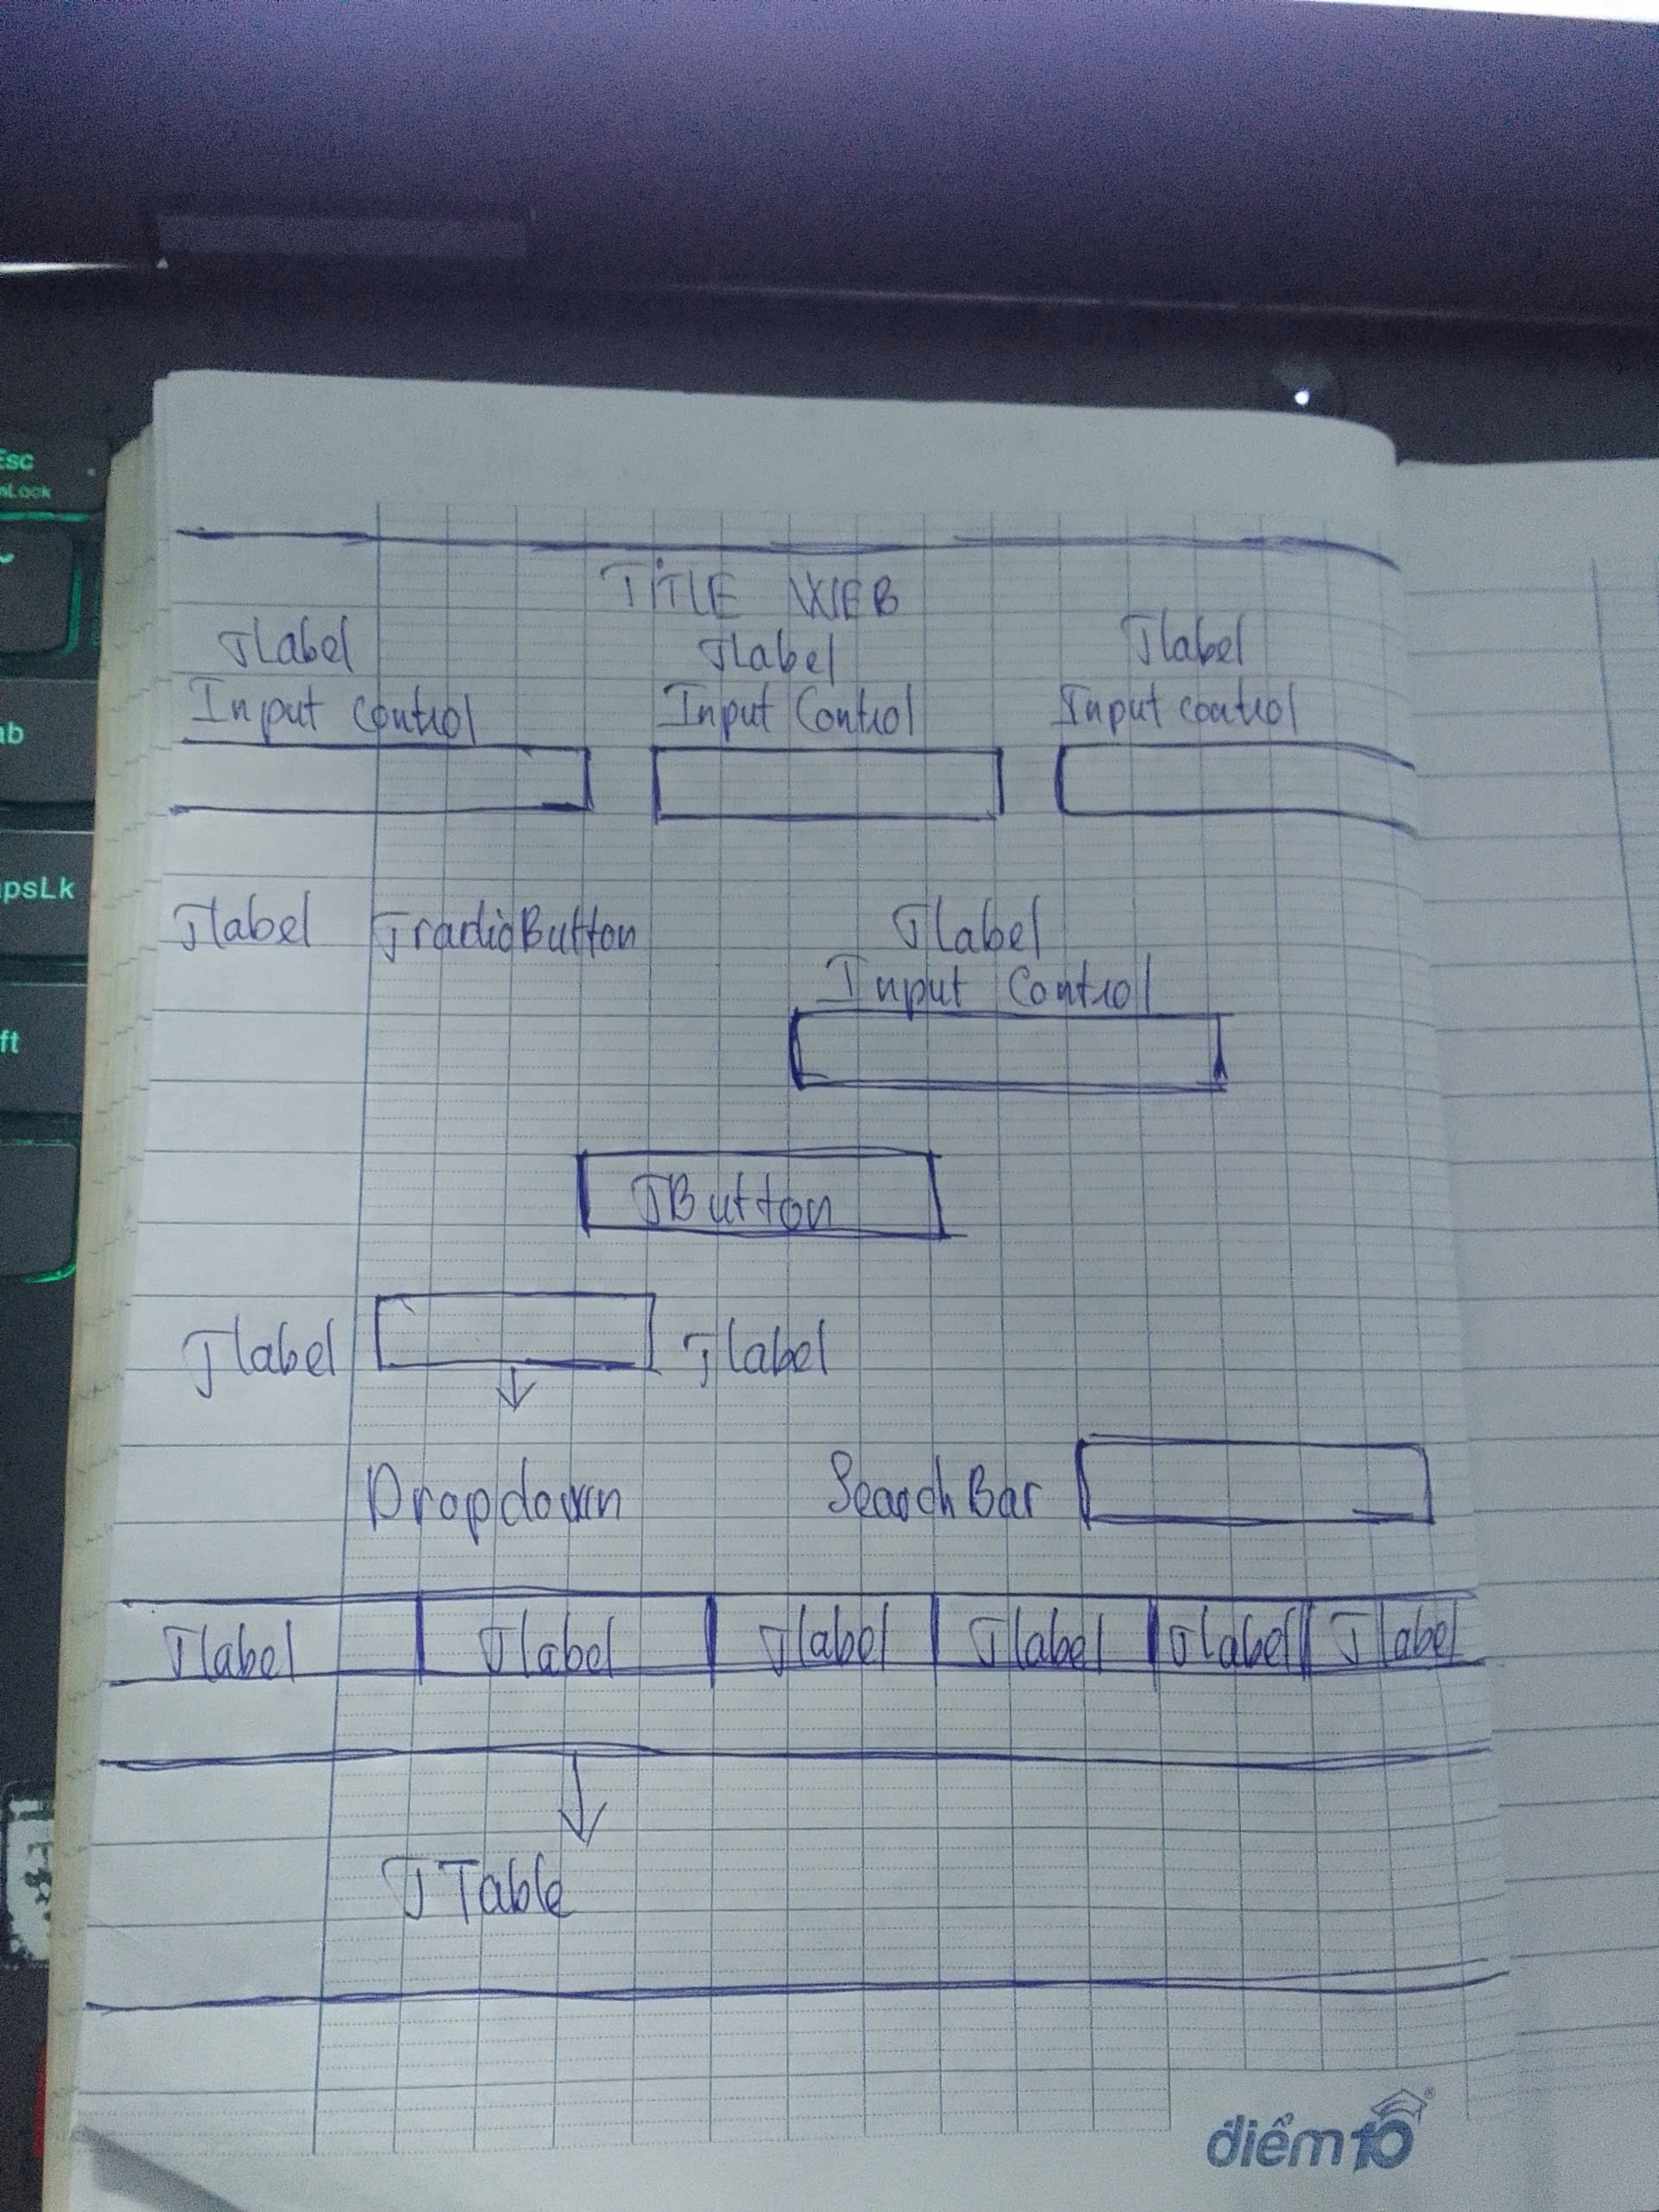 Esc
TITLE WEB
JLabel JLabel Jlabel
Input Control Input Control Input control
Jlabel JradioButton Jlabel
Input Control
JButton
Jlabel Jlabel
Dropdown SearchBar
Jlabel Jlabel Jlabel Jlabel Jlabel Jlabel
JTable
điểm10